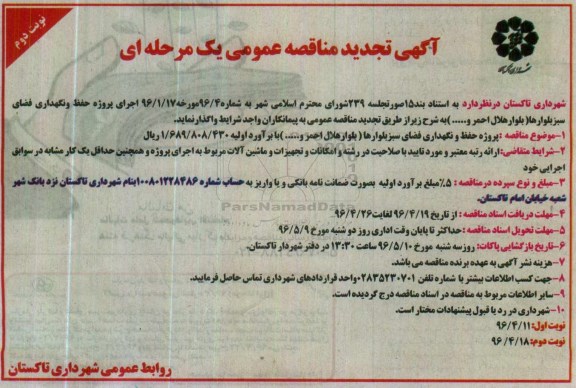 نوبت دوم
آگهی تجدید مناقصه عمومی یک مرحله ای
شهرداری تاکستان درنظردارد به استناد بند۱۵صورتجلسه ۲۳۹شورای محترم اسلامی شهر به شماره۹۶/۴مورخه۹۶/۱/۱۷ اجرای پروژه حفظ ونگهداری فضای
سبزبلوارها( بلوارهلال احمر و......)به شرح زیراز طریق تجدید مناقصه عمومی به پیمانکاران واجد شرایط واگذارنماید.
۱-موضوع مناقصه :پروژه حفظ و نگهداری فضای سبزبلوارها ( بلوارهلال احمرو.....)با برآورد اولیه ۱/۶۸۹/۸۰۸/۴۳۰ ریال
۲-شرایط متقاضی:ارائه رتبه معتبر و مورد تایید با صلاحیت در رشته و امکانات و تجهیزات و ماشین آلات مربوط به اجرای پروژه و همچنین حداقل یک کار مشابه در سوابق
اجرایی خود
۳-مبلغ و نوع سپرده درمناقصه : ۵٪مبلغ برآورد اولیه بصورت ضمانت نامه بانکی و یا واریز به حساب شماره ۱۰۰۸۰۱۲۲۸۴۸۶بنام شهرداری تاکستان نزد بانک شهر
شعبه خیابان امام تاکستان.
۴-مهلت دریافت اسناد مناقصه : از تاریخ ۹۶/۴/۱۹ لغایت۹۶/۴/۲۶
۵-مهلت تحویل اسناد مناقصه: حداکثر تا پایان وقت اداری روز دو شنبه مورخ ۹۶/۵/۹
۶-تاریخ بازگشایی پاکات: روزسه شنبه مورخ ۹۶/۵/۱۰ ساعت ۱۳:۳۰ در دفتر شهردار تاکستان.
۷-هزینه نشر آگهی به عهده برنده مناقصه می باشد.
۸-جهت کسب اطلاعات بیشتر با شماره تلفن ۰۲۸۳۵۲۳۰۷۰۱واحد قراردادهای شهرداری تماس حاصل فرمایید.
۹-سایر اطلاعات مربوط به مناقصه در اسناد مناقصه درج گردیده است.
۱۰-شهرداری در رد یا قبول پیشنهادات مختار است.
نوبت اول: ۹۶/۴/۱۱
نوبت دوم: ۹۶/۴/۱۸
روابط عمومی شهرداری تاکستان
ParsNamadData